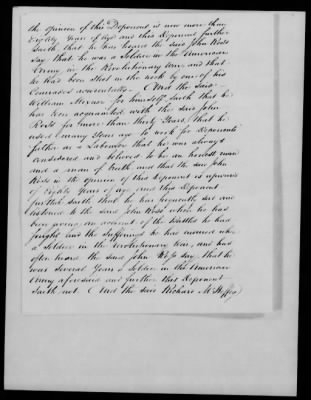 the opinion of this Deponent is now more than
Eighty Years of Age and this Deponent further
Saith that he has heard the said John Ross
Say that he was a Soldier in the American
Army in the Revolutionary War and that
he had been shot in the neck by one of his
Comrades accidentally. And the said
William for himself saith that he
has been acquainted with the said John
Ross for more than thirty Years, that he
used many Years ago to work for Deponents
father as a Labourer that he was always
considered and believed to be an honest man
and a man of truth and that the said John
Ross in the opinion of this Deponent is upwards
of Eighty Years of age and this Deponent
further saith that he has frequently sat and
listened to the said John Ross when he has
been giving an account of the Battles he had
fought and the Sufferings he has endured when
a Soldier in the Revolutionary War, and has
often heard the said John Ross say, that he
was several Years a Soldier in the American
Army aforesaid and further this Deponent
Saith not. And the said Richard